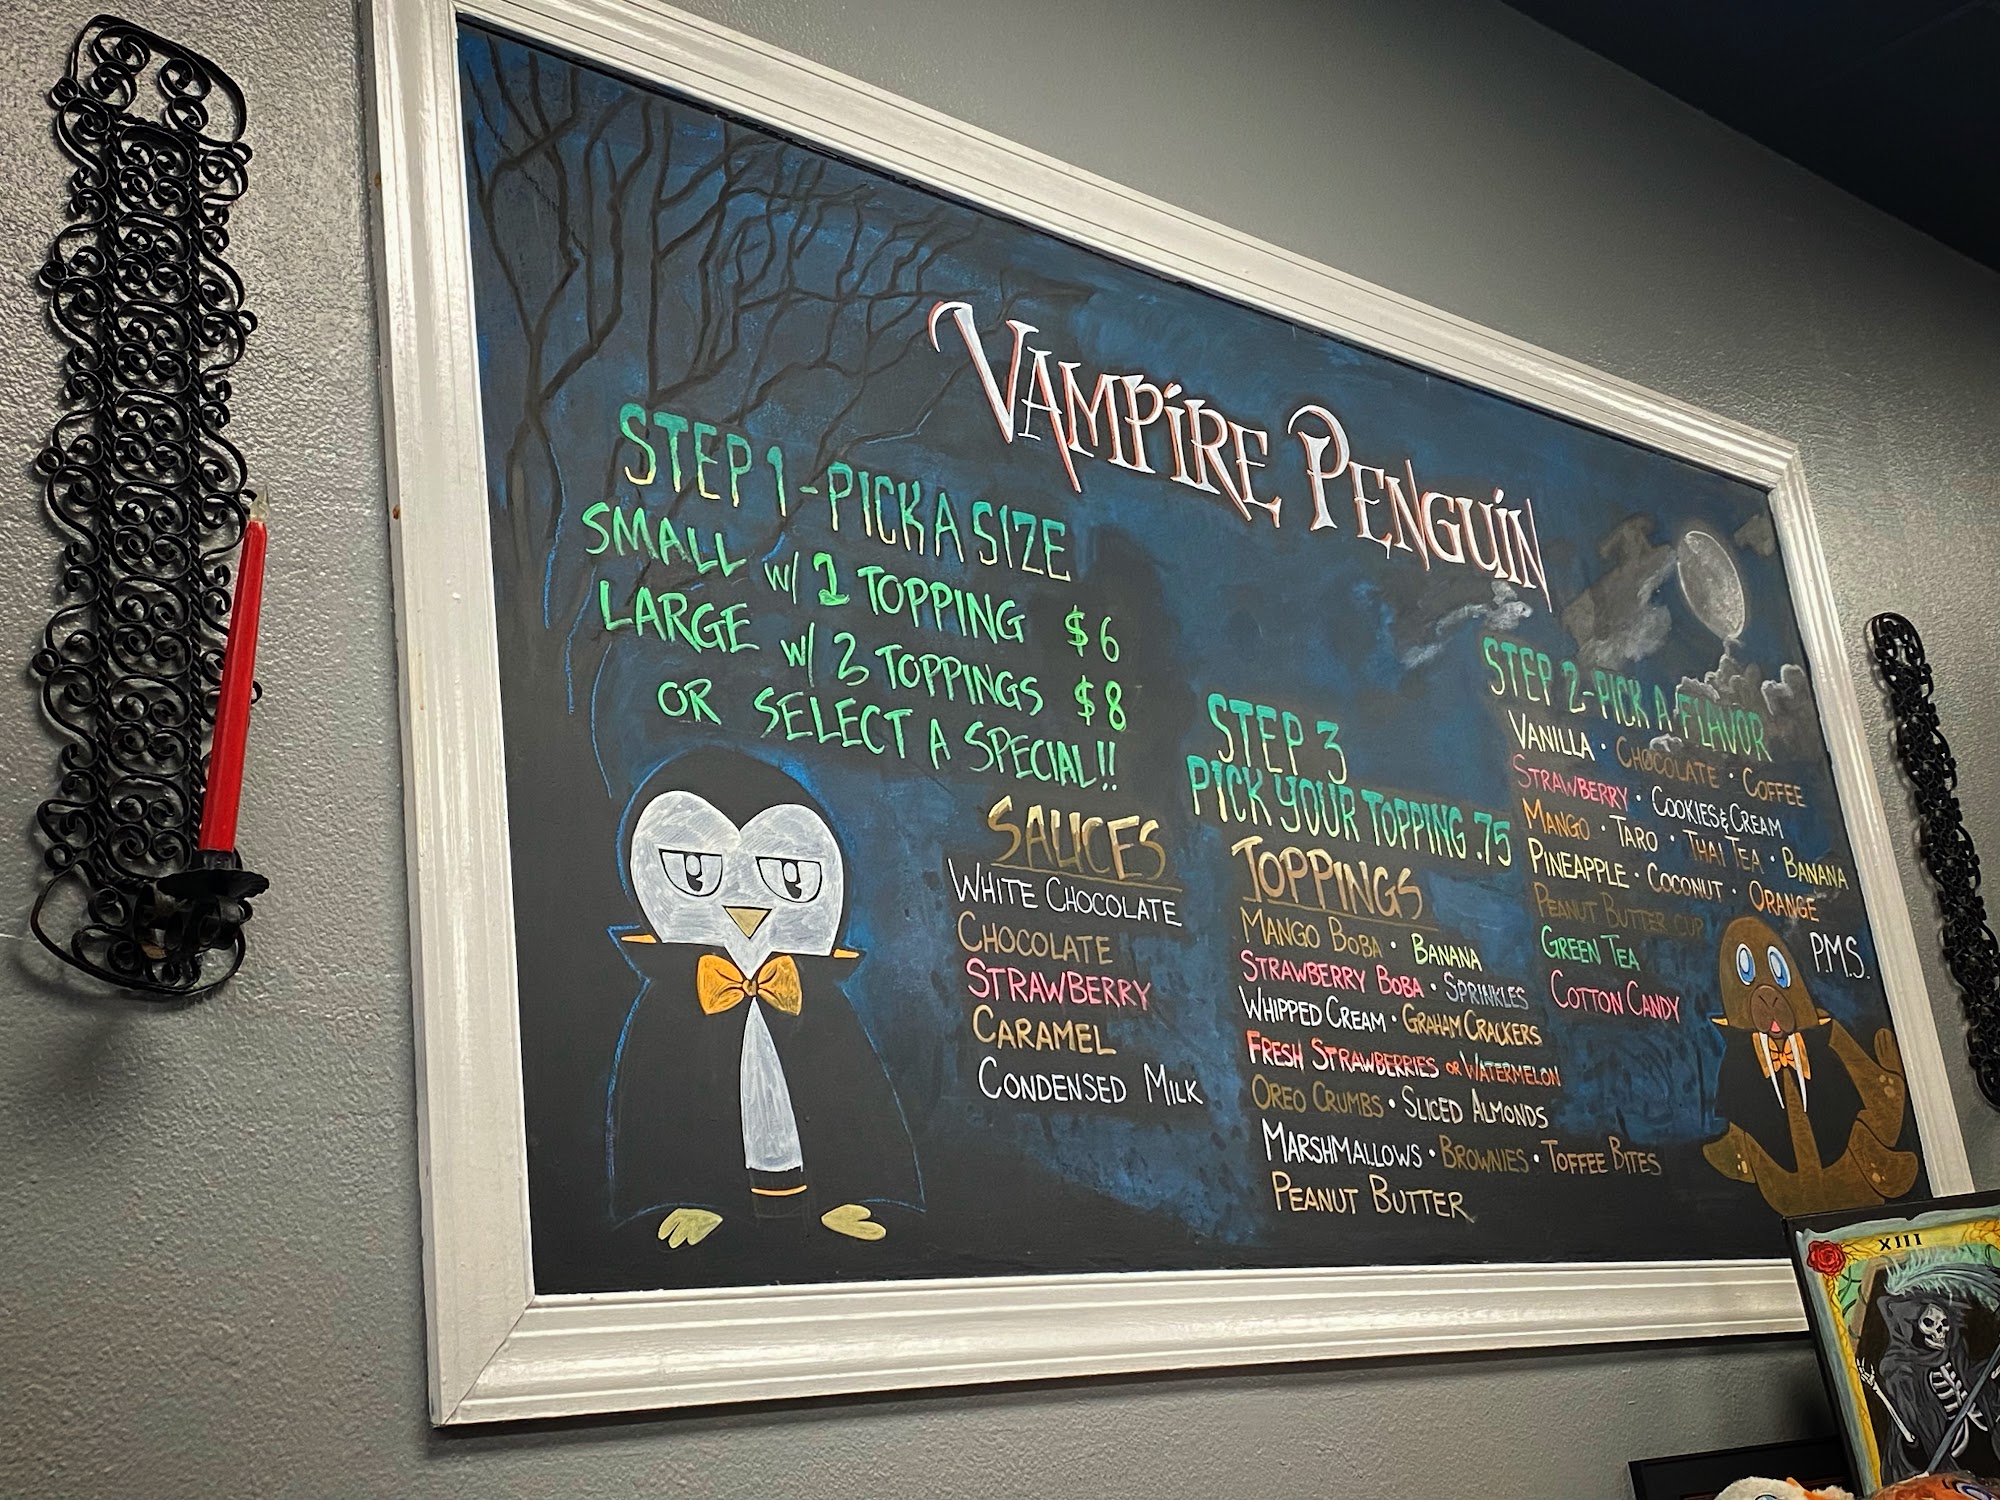 VAMPIRE PENGUIN
STEP 1 - PICK A SIZE
SMALL w/ 1 TOPPING $6
LARGE w/ 3 TOPPINGS $8
OR SELECT A SPECIAL!!
SAUCES
WHITE CHOCOLATE
CHOCOLATE
STRAWBERRY
CARAMEL
CONDENSED MILK
STEP 3
PICK YOUR TOPPING .75
TOPPINGS
MANGO BOBA · BANANA
STRAWBERRY BOBA · SPRINKLES
WHIPPED CREAM · GRAHAM CRACKERS
FRESH STRAWBERRIES OR WATERMELON
OREO CRUMBS · SLICED ALMONDS
MARSHMALLOWS · BROWNIES · TOFFEE BITES
PEANUT BUTTER
STEP 2 - PICK A FLAVOR
VANILLA · CHOCOLATE · COFFEE
STRAWBERRY · COOKIES & CREAM
MANGO · TARO · THAI TEA · BANANA
PINEAPPLE · COCONUT · ORANGE
PEANUT BUTTER CUP
GREEN TEA
COTTON CANDY
P.M.S.
XIII